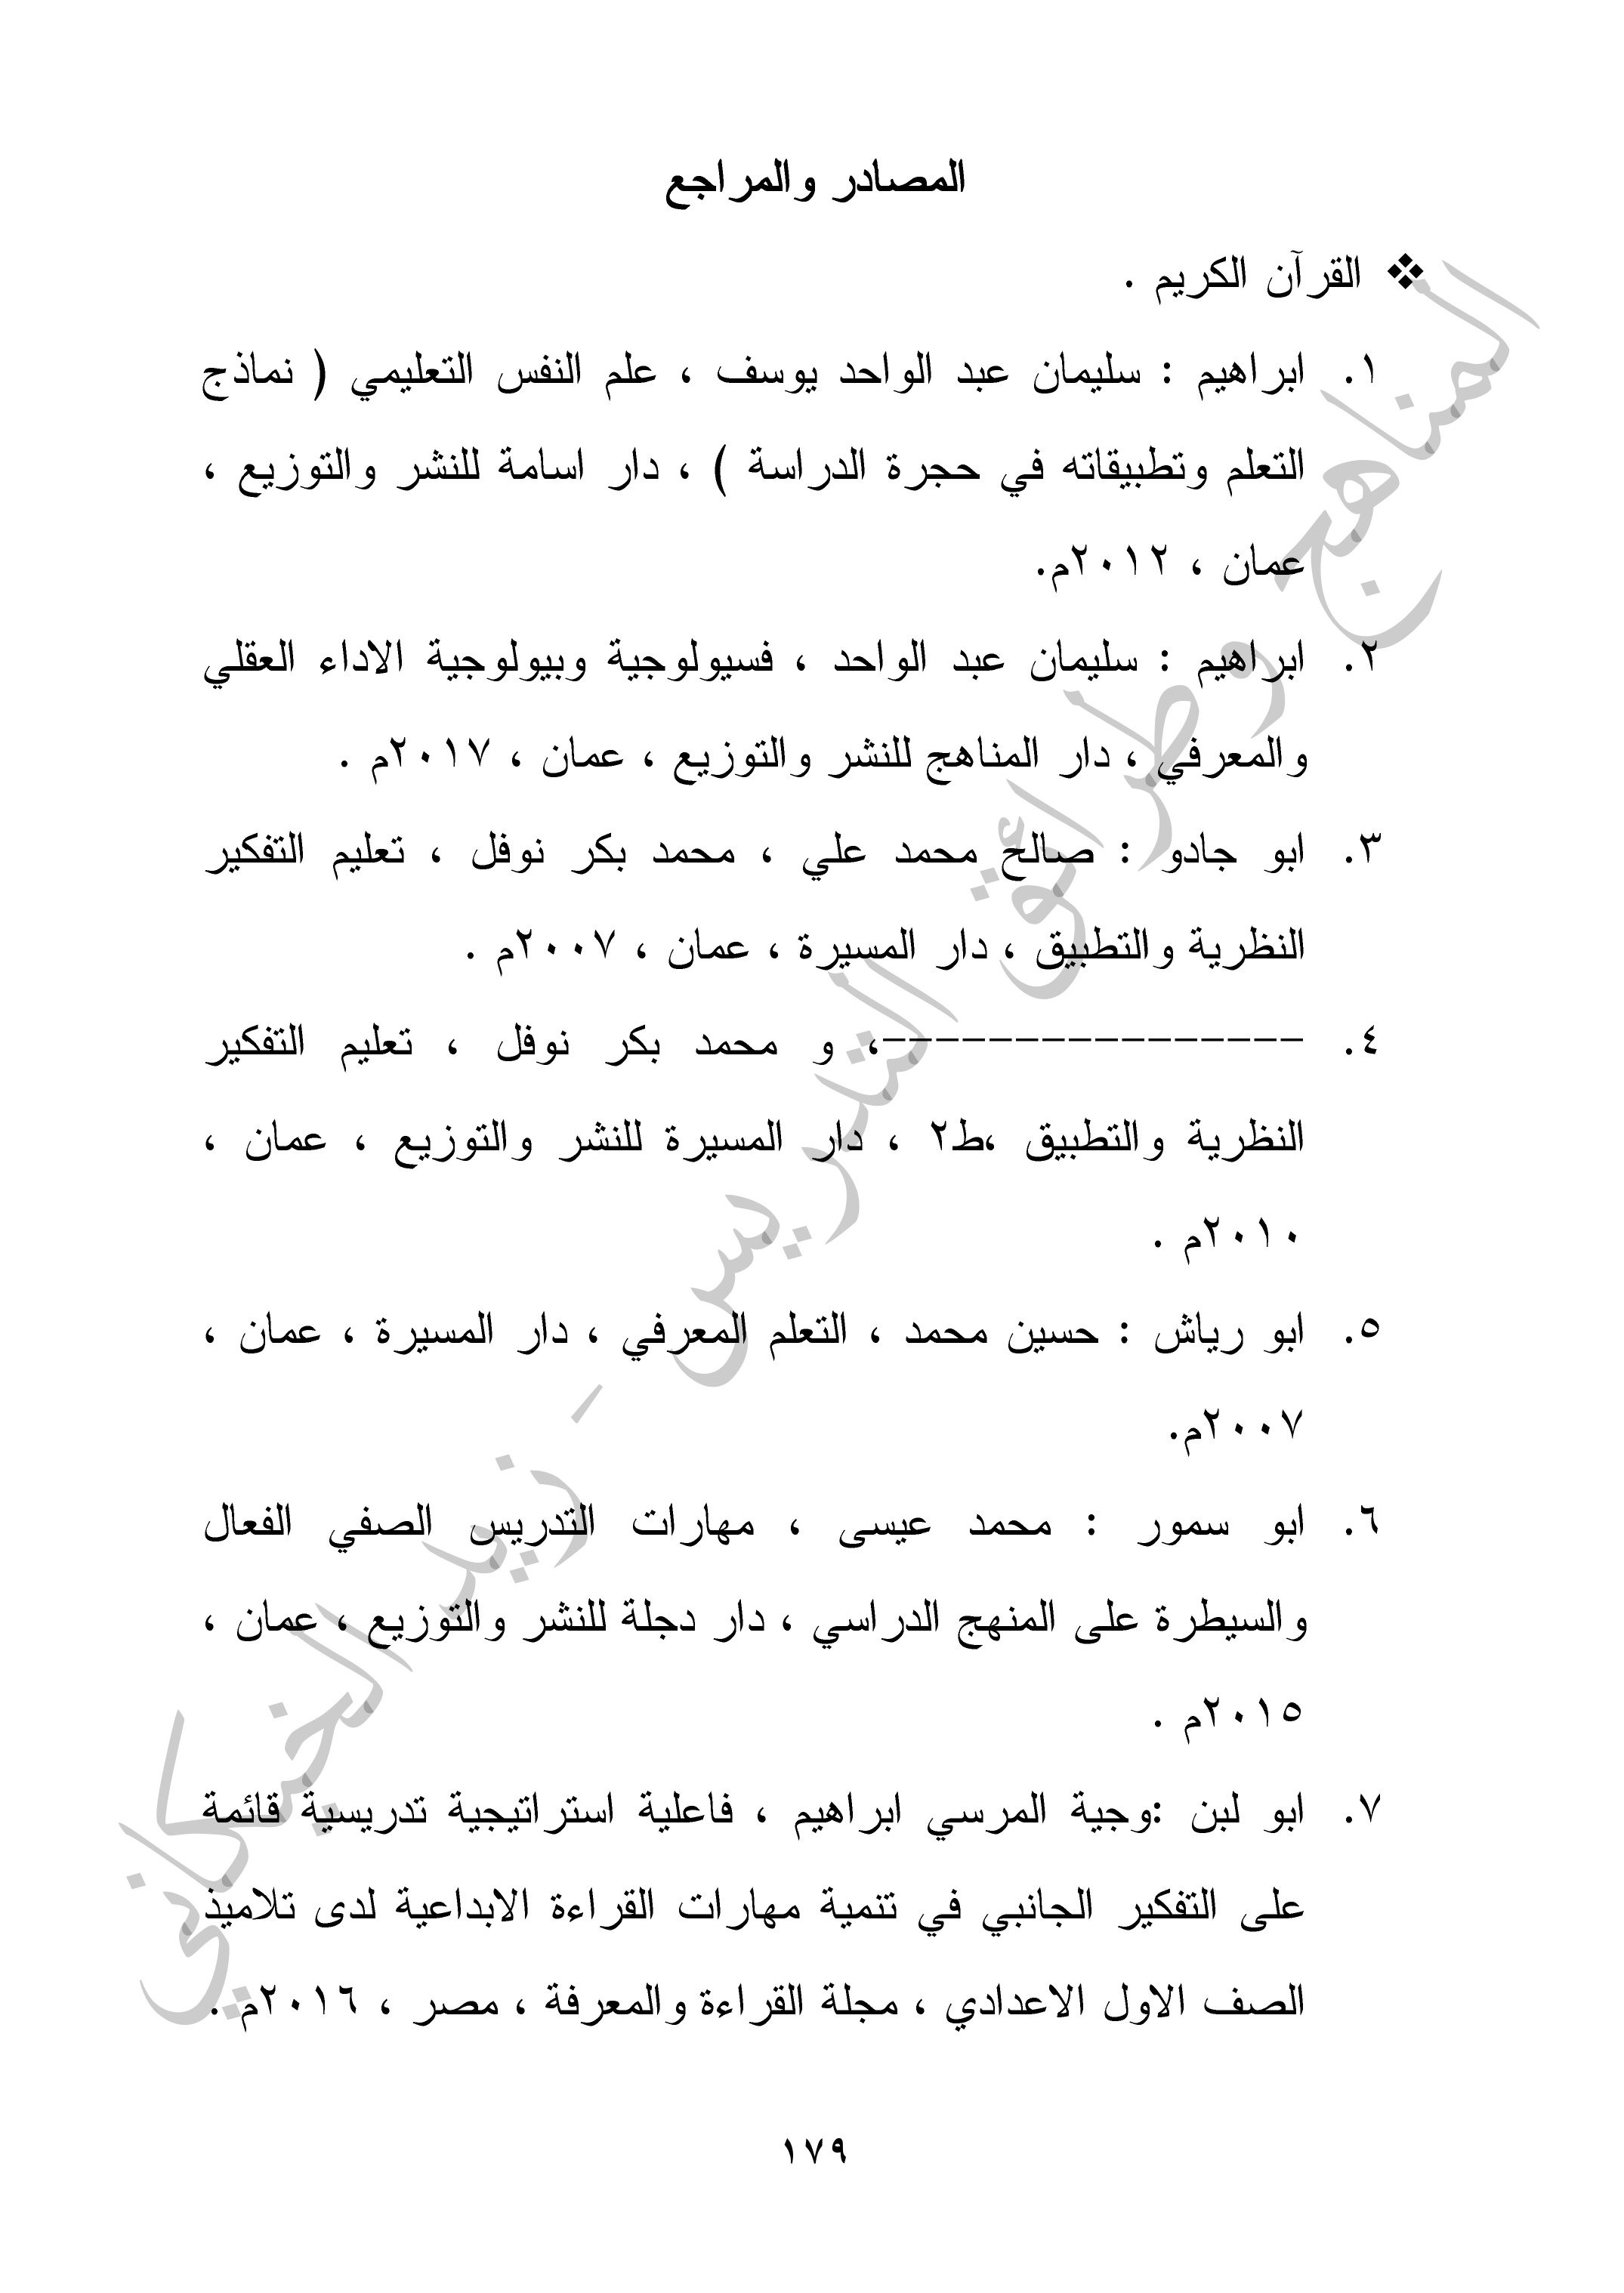 المصادر والمراجع
❖ القرآن الكريم .
١. ابراهيم : سليمان عبد الواحد يوسف ، علم النفس التعليمي ( نماذج
التعلم وتطبيقاته في حجرة الدراسة ) ، دار اسامة للنشر والتوزيع ،
عمان ، ٢٠١٢م.
٢. ابراهيم : سليمان عبد الواحد ، فسيولوجية وبيولوجية الاداء العقلي
والمعرفي ، دار المناهج للنشر والتوزيع ، عمان ، ٢٠١٧م .
٣. ابو جادو : صالح محمد علي ، محمد بكر نوفل ، تعليم التفكير
النظرية والتطبيق ، دار المسيرة ، عمان ، ٢٠٠٧م .
٤. ----------------، و محمد بكر نوفل ، تعليم التفكير
النظرية والتطبيق ،ط٢ ، دار المسيرة للنشر والتوزيع ، عمان ،
٢٠١٠م .
٥. ابو رياش : حسين محمد ، التعلم المعرفي ، دار المسيرة ، عمان ،
٢٠٠٧م.
٦. ابو سمور : محمد عيسى ، مهارات التدريس الصفي الفعال
والسيطرة على المنهج الدراسي ، دار دجلة للنشر والتوزيع ، عمان ،
٢٠١٥م .
٧. ابو لبن :وجية المرسي ابراهيم ، فاعلية استراتيجية تدريسية قائمة
على التفكير الجانبي في تنمية مهارات القراءة الابداعية لدى تلاميذ
الصف الاول الاعدادي ، مجلة القراءة والمعرفة ، مصر ، ٢٠١٦م .
١٧٩
المناهج وطرائق التدريس - زيد الخيكاني